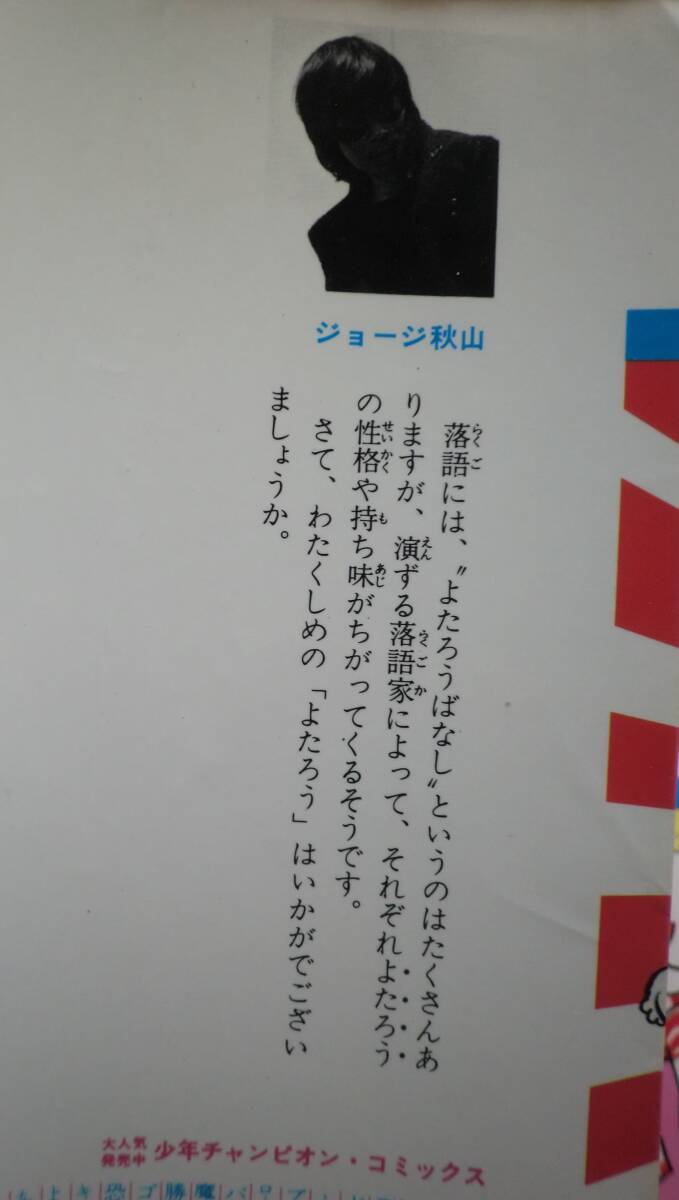 ジョージ秋山
落語には、〝よたろうばなし〟というのはたくさんあ
りますが、演ずる落語家によって、それぞれよたろう
の性格や持ち味がちがってくるそうです。
さて、わたくしめの「よたろう」はいかがでござい
ましょうか。
大人気
発売中
少年チャンピオン・コミックス